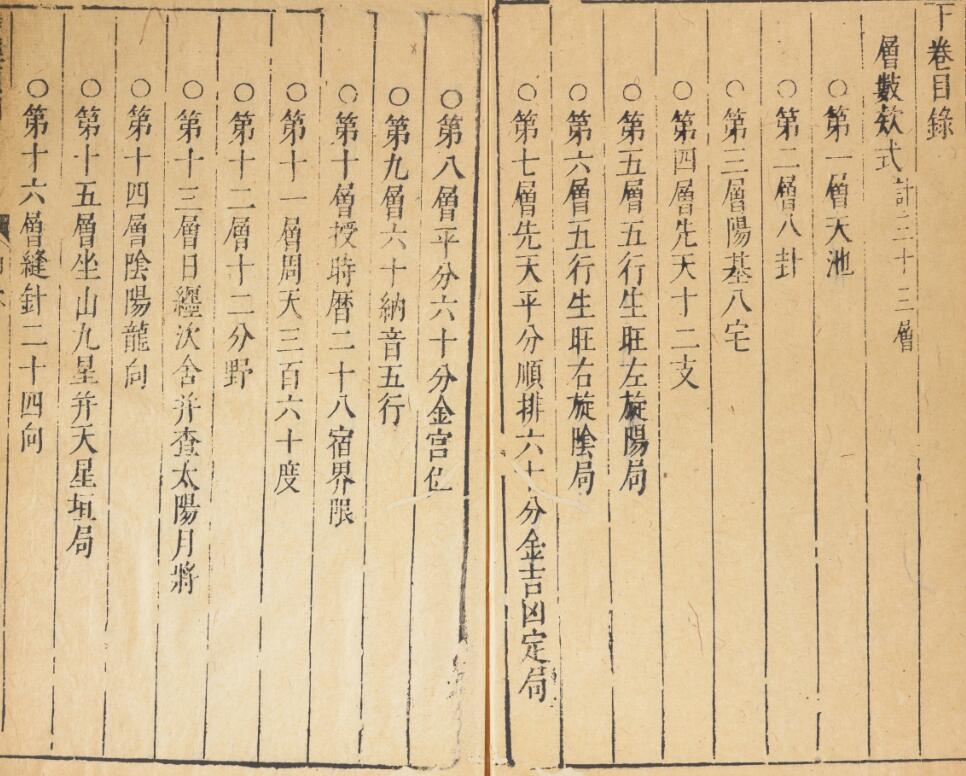 下卷目錄
層數欵式計三十三層
○第一層天池
○第二層八卦
○第三層陽基八宅
○第四層先天十二支
○第五層五行生旺左旋陽局
○第六層五行生旺右旋陰局
○第七層先天平分順排六十分金吉凶定局
○第八層平分六十分金宫位
○第九層六十納音五行
○第十層授時暦二十八宿界限
○第十一層周天三百六十度
○第十二層十二分野
○第十三層日纏次舍并查太陽月將
○第十四層陰陽龍向
○第十五層坐山九星并天星垣局
○第十六層縫針二十四向